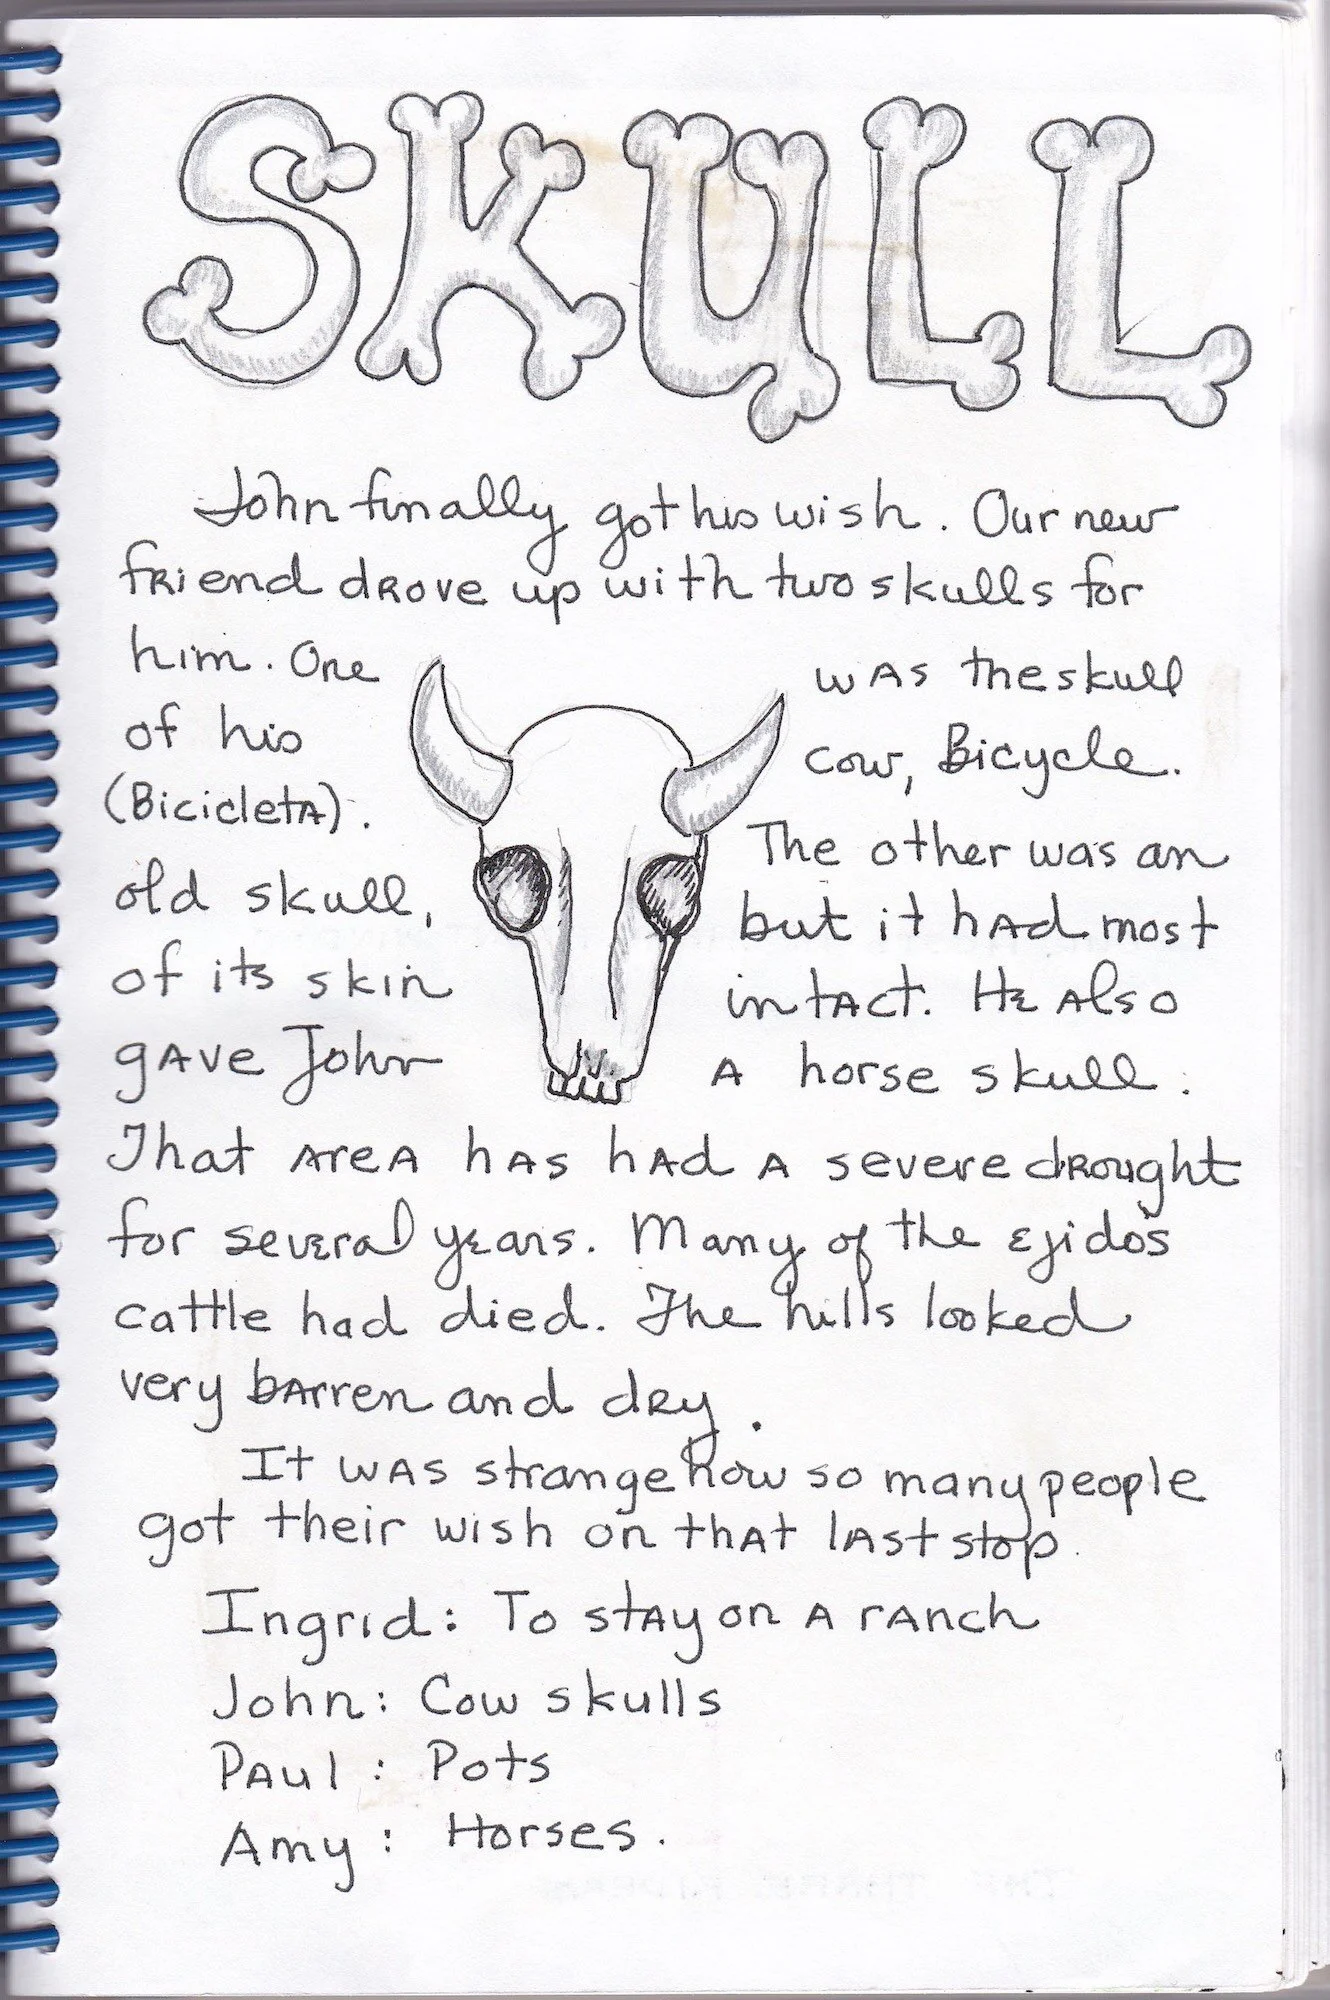 SKULL
John finally got his wish. Our new
friend drove up with two skulls for
him. One was the skull
of his cow, Bicycle.
(Bicicleta). The other was an
old skull, but it had most
of its skin intact. He also
gave John a horse skull.
That area has had a severe drought
for several years. Many of the ejido's
cattle had died. The hills looked
very barren and dry.
It was strange how so many people
got their wish on that last stop.
Ingrid: To stay on a ranch
John: Cow skulls
Paul: Pots
Amy: Horses.